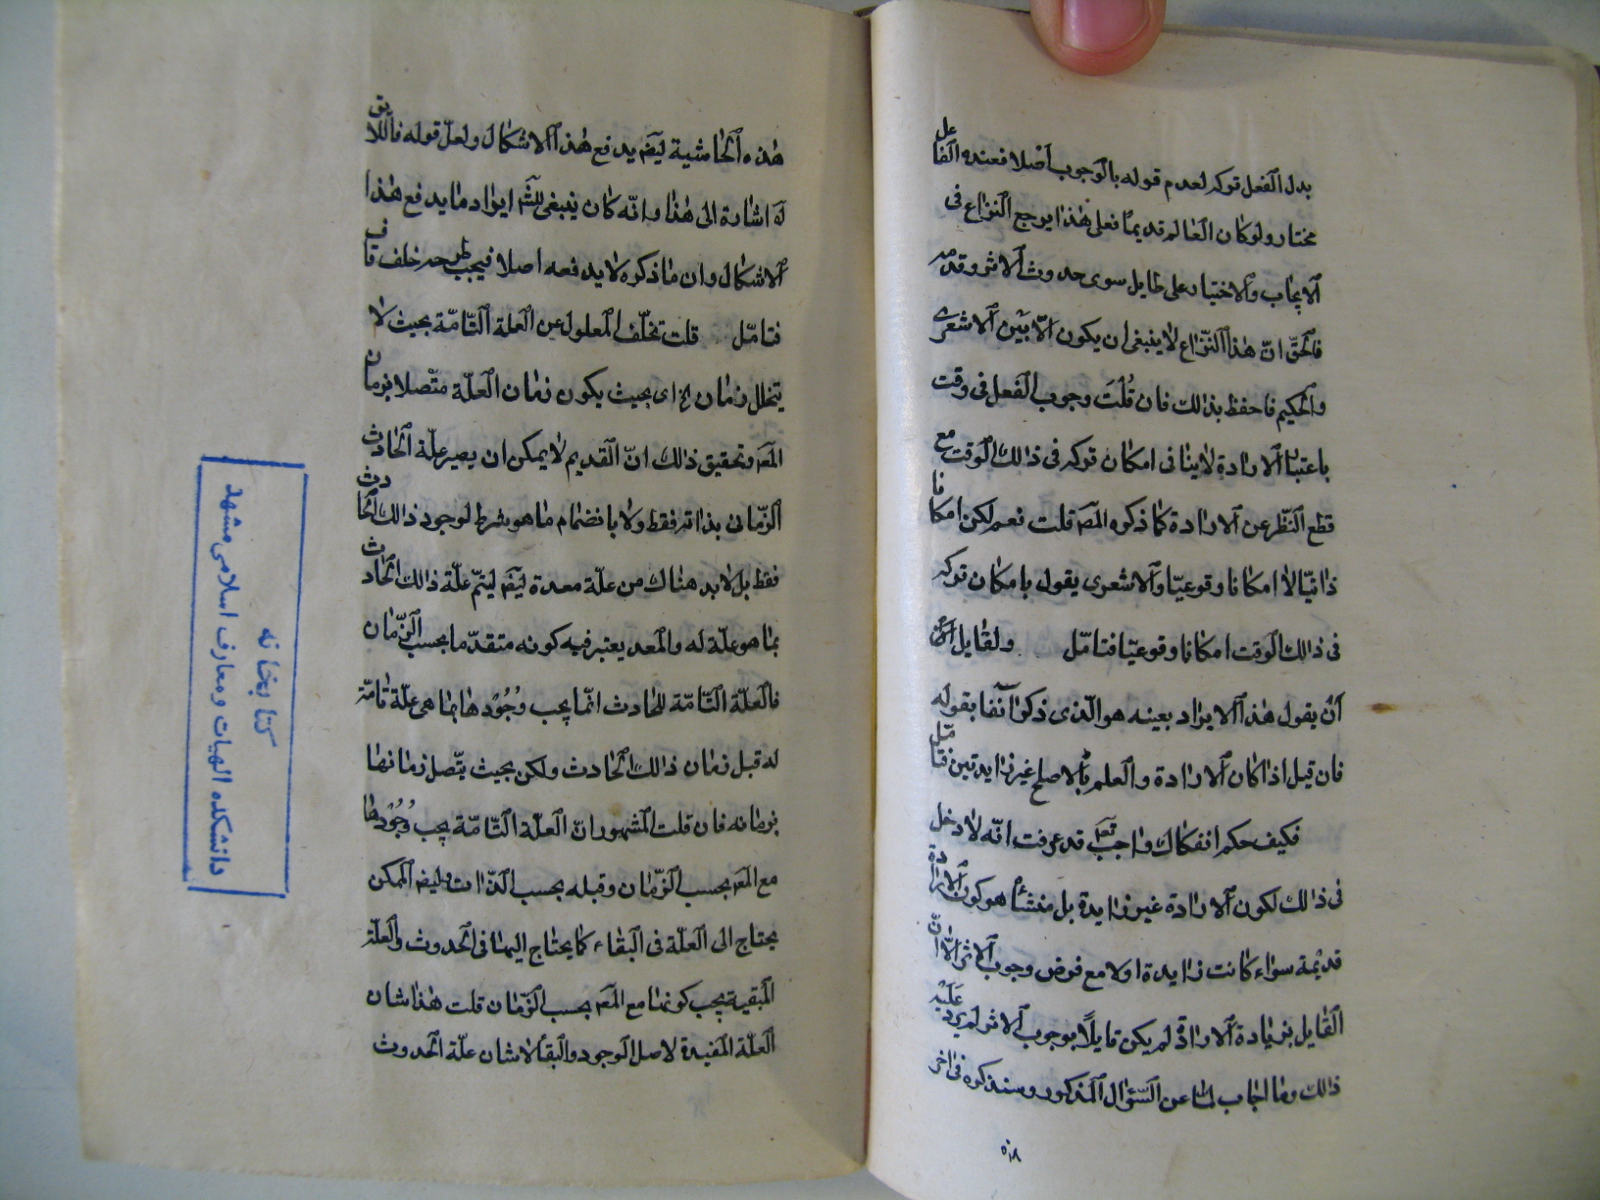 بدل الفعل تركه لعدم قوله بالوجوب اصلا فعنده الفاعل
مختار ولو كان العالم قديماً فعلى هذا يرجع النزاع فى
الايجاب والاختيار على طايل سوى حدوث الاثر وقدمه
فالحق انّ هذا النزاع لا ينبغى ان يكون الّا بين الاشعرى
والحكيم فاحفظ بذالك فان قُلتَ وجوب الفعل فى وقت
باعتبار الارادة لا ينافى امكان تركه فى ذالك الوقت مع
قطع النظر عن الارادة كما ذكره المصر قلت نعم لكن امكانا
ذاتيّا لا امكانا وقوعيّا والاشعرى يقول بامكان تركه
فى ذالك الوقت امكانا وقوعيّا فتامّل ولقايل
أن يقول هذا الايراد بعينه هو الّذى ذكر آنفا بقوله
فان قيل اذا كان الارادة والعلم بالاصلح غير زايدتين فتامّل
فكيف حكم انفكاك واجب تعم قد عرفت انّه لا دخل
فى ذالك لكون الارادة غير زايدة بل منشأ هو كون الارادة
قديمة سواء كانت زايدة اولا مع فرض وجوب الاثر الّا انّ
القايل بزيادة الارادة لم يكن قايلاً بوجوب الاثر لم يرد عَلَيْه
ذالك وما اجاب لنا عن السّؤال المذكور وسنذكره فى اخر
٥١٨
هذه الحاشية ليضر يدفع هذا الاشكال ولعلّ قوله فاللايق
له اشارة الى هذا وانّه كان ينبغى للشم ايراد ما يدفع هذا
الاشكال وان ما ذكره لا يدفعه اصلا فيجب حر خلف قاف
فتامّل قلت تخلّف المعلول عن العلة التّامّة بحيث لا
يتخلل زمان مح اى بحيث يكون زمان العلّة متّصلا بزمان
المعر وتحقيق ذالك انّ القديم لا يمكن ان يصير علّة الحادث
الزّمانى بذاته فقط ولا بانضمام ما هو شرط لوجود ذالك الحادث
فقط بل لا بد هناك من علّة معدة ليضر ليتمّ علّة ذالك الحادث
بما هو علّة له والمعد يعتبر فيه كونه متقدّما بحسب الزّمان
فالعلّة التّامّة للحادث انّما يجب وُجُودها بما هى علّة تامّة
له قبل زمان ذالك الحادث ولكن بحيث يتّصل زمانها
بزمانه فان قلت المشهور انّ العلّة التّامّة يجب وُجُودها
مع المعر بحسب الزّمان وقبله بحسب الذّات وليضر الممكن
يحتاج الى العلّة فى البقاء كما يحتاج اليها فى الحدوث والعلّة
المبقية يجب كونها مع المعر بحسب الزّمان قلت هذا شان
العلّة المفيدة لاصل الوجود والبقا لا شان علّة الحدوث
كتابخانه
دانشكده الهيات ومعارف اسلامى مشهد